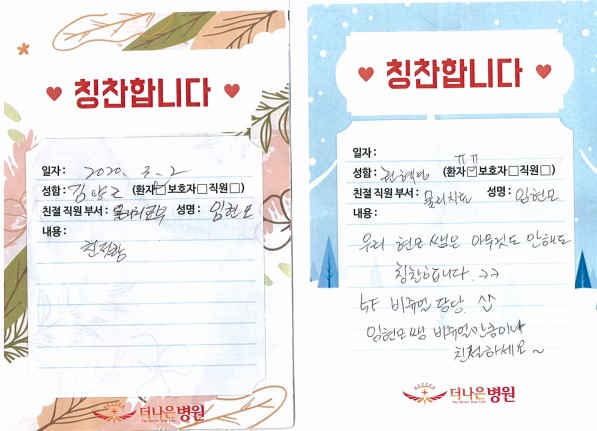 칭찬합니다
일자 : 2020. 3. 2
성함 : (환자 보호자 직원 )
친절 직원 부서 : 성명 : 임현모
내용 :
더나은병원
칭찬합니다
일자 :
성함 : (환자 보호자 직원 )
ㅠㅠ
친절 직원 부서 : 물리치료 성명 : 임현모
내용 :
우리 현모 쌤은 아무것도 안해도
칭찬합니다. >>
비쥬얼 담당. ^^
임현모쌤 비쥬얼만큼이나
친절하세요~
더나은병원